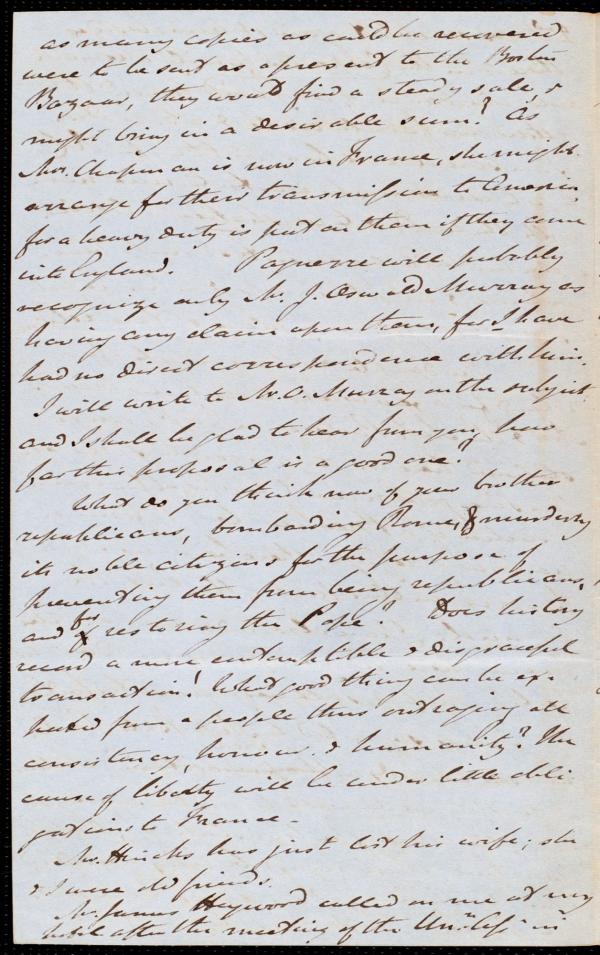 as many copies as could be recovered
were to be sent as a present to the Boston
Bazaar, they would find a steady sale, &
might bring in a desirable sum? As
Mrs. Chapman is now in France, she might
arrange for their transmission to America,
for a heavy duty is put on them if they come
into England. Pagnerre will probably
recognize only Mr. J. Oswald Murray as
having any claim upon them, for I have
had no direct correspondence with him.
I will write to Mr. O. Murray on the subject
and I shall be glad to hear from you how
far this proposal is a good one.
What do you think now of your brother
republicans, bombarding Rome, & murdering
its noble citizens for the purpose of
preventing them from being republicans,
and for restoring the Pope! Does history
record a more contemptible & disgraceful
transaction! What good thing can be ex-
pected from a people thus outraging all
consistency, honour & humanity? The
cause of liberty will be under little obli-
gations to France.
Mr. Hincks has just lost his wife; she
& I were old friends.
Mr. James Heywood called on me at my
hotel after the meeting of the Unn. Assn in